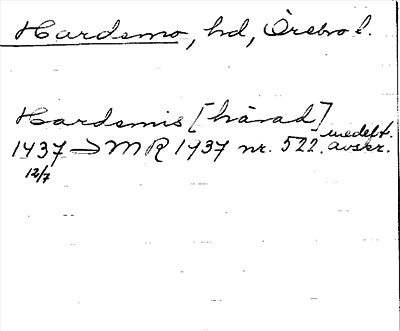 Hardemo, hd, Örebro l.
Hardemis [härad]
1437 → MR 1437 nr. 522. medelt. avskr.
12/7